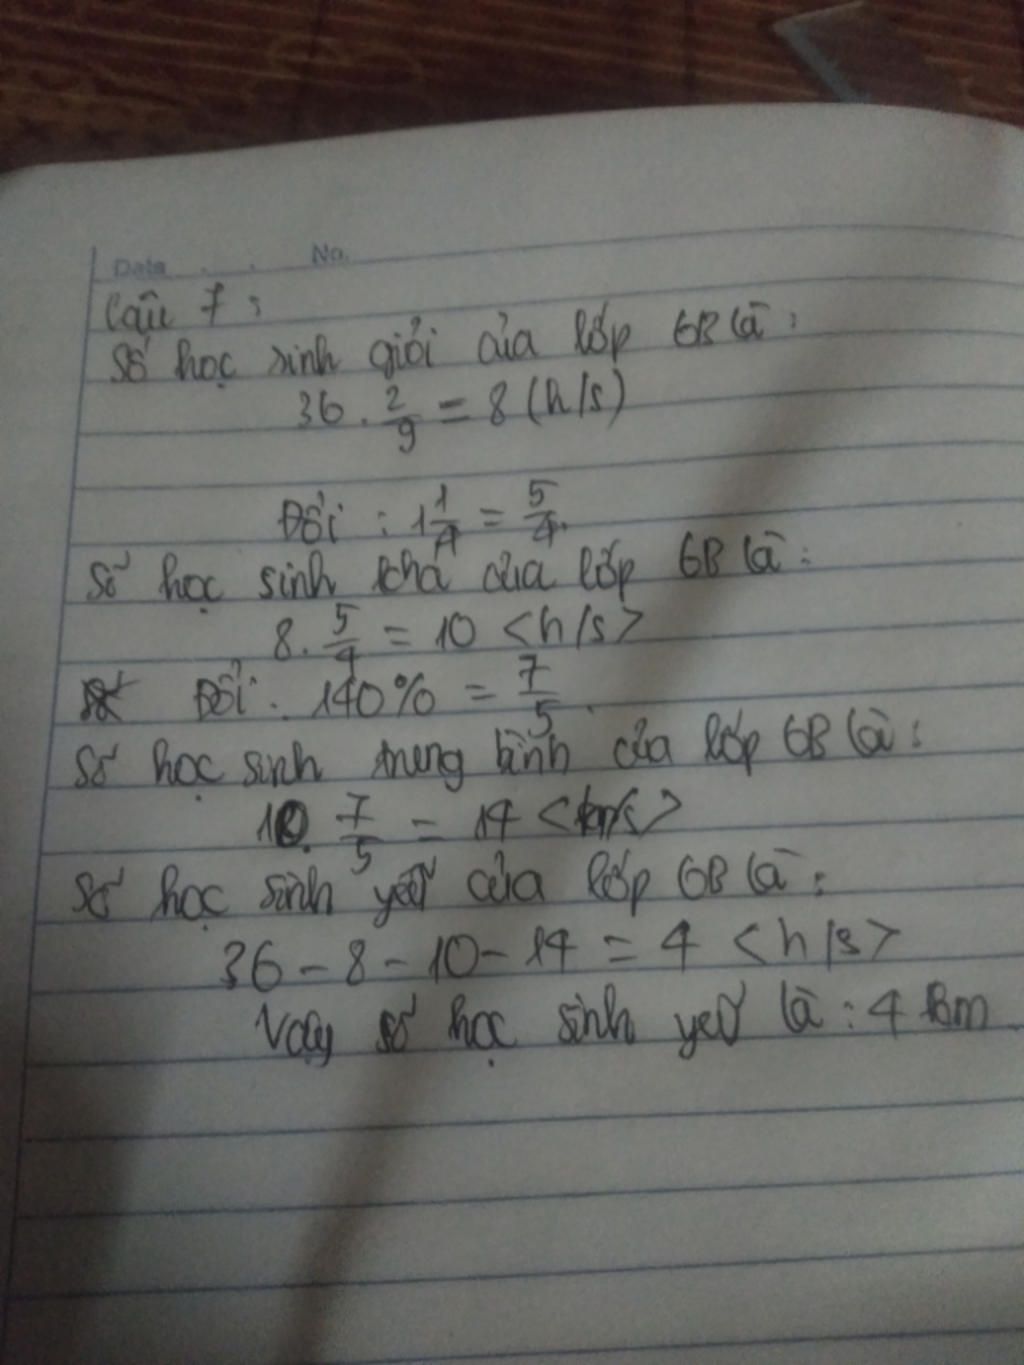 Data . . No.
Câu 7 :
Số học sinh giỏi của lớp 6B là :
36 . 2/9 = 8 (h/s)
Đổi : 1 1/4 = 5/4.
Số học sinh khá của lớp 6B là :
8 . 5/4 = 10 <h/s>
Đổi : 140% = 7/5.
Số học sinh trung bình của lớp 6B là :
10 . 7/5 = 14 <h/s>
Số học sinh yếu của lớp 6B là :
36 - 8 - 10 - 14 = 4 <h/s>
Vậy số học sinh yếu là : 4